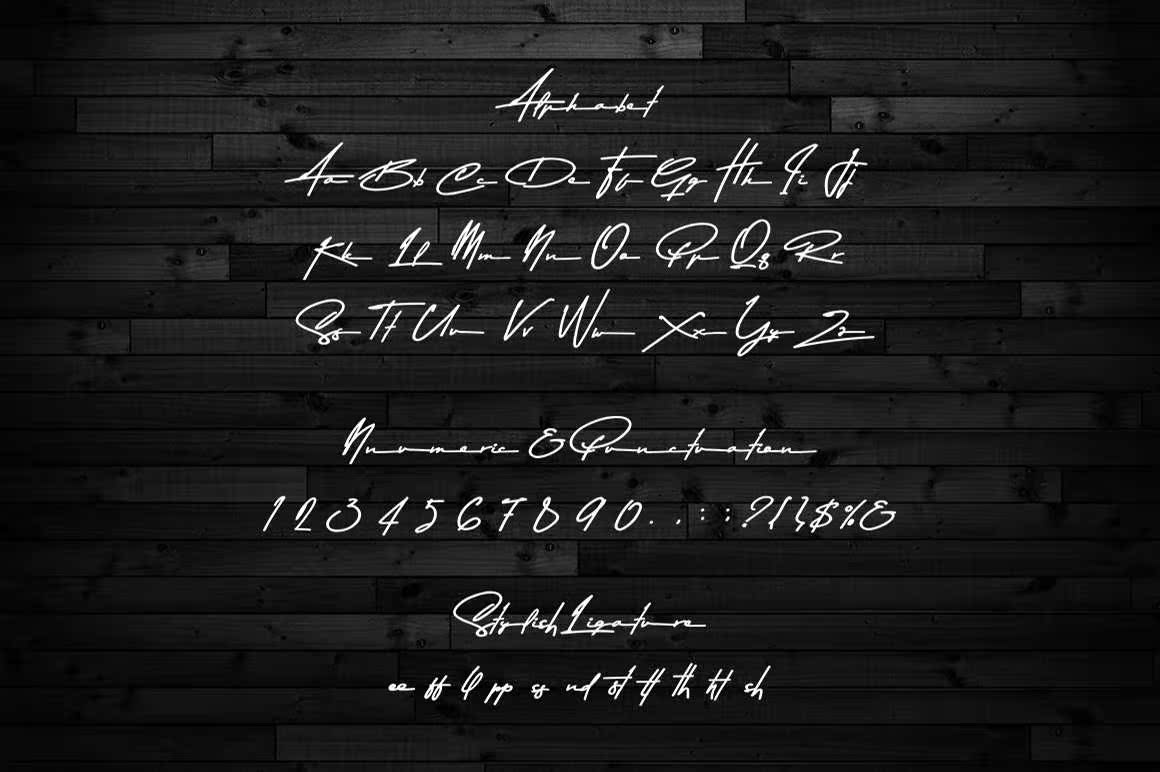 Alphabet
Aa Bb Cc De Ff Gg Hh Ii Jj
Kk Ll Mm Nn Oo Pp Qq Rr
Ss Tt Uu Vv Ww Xx Yy Zz
Nnumeric & Punctuation
1 2 3 4 5 6 7 8 9 0 . , : ; ? { } $ % &
Stylish Ligature
ee ff ll pp ss nd st tt th ht sh